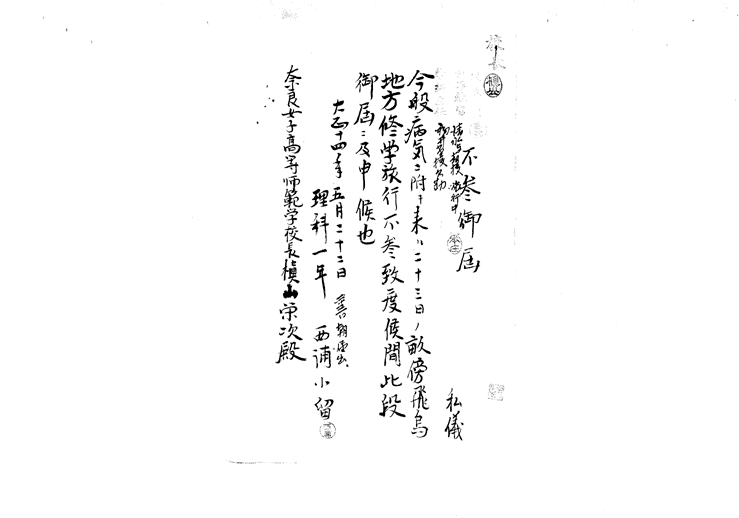 校長
不参御届
私儀
今般病気ニ附キ来ル二十三日ノ畝傍飛鳥
地方修学旅行不参致度候間此段
御届ニ及申候也
大正十四年五月二十二日
理科一年 西浦小留
奈良女子高等師範学校長槙山栄次殿